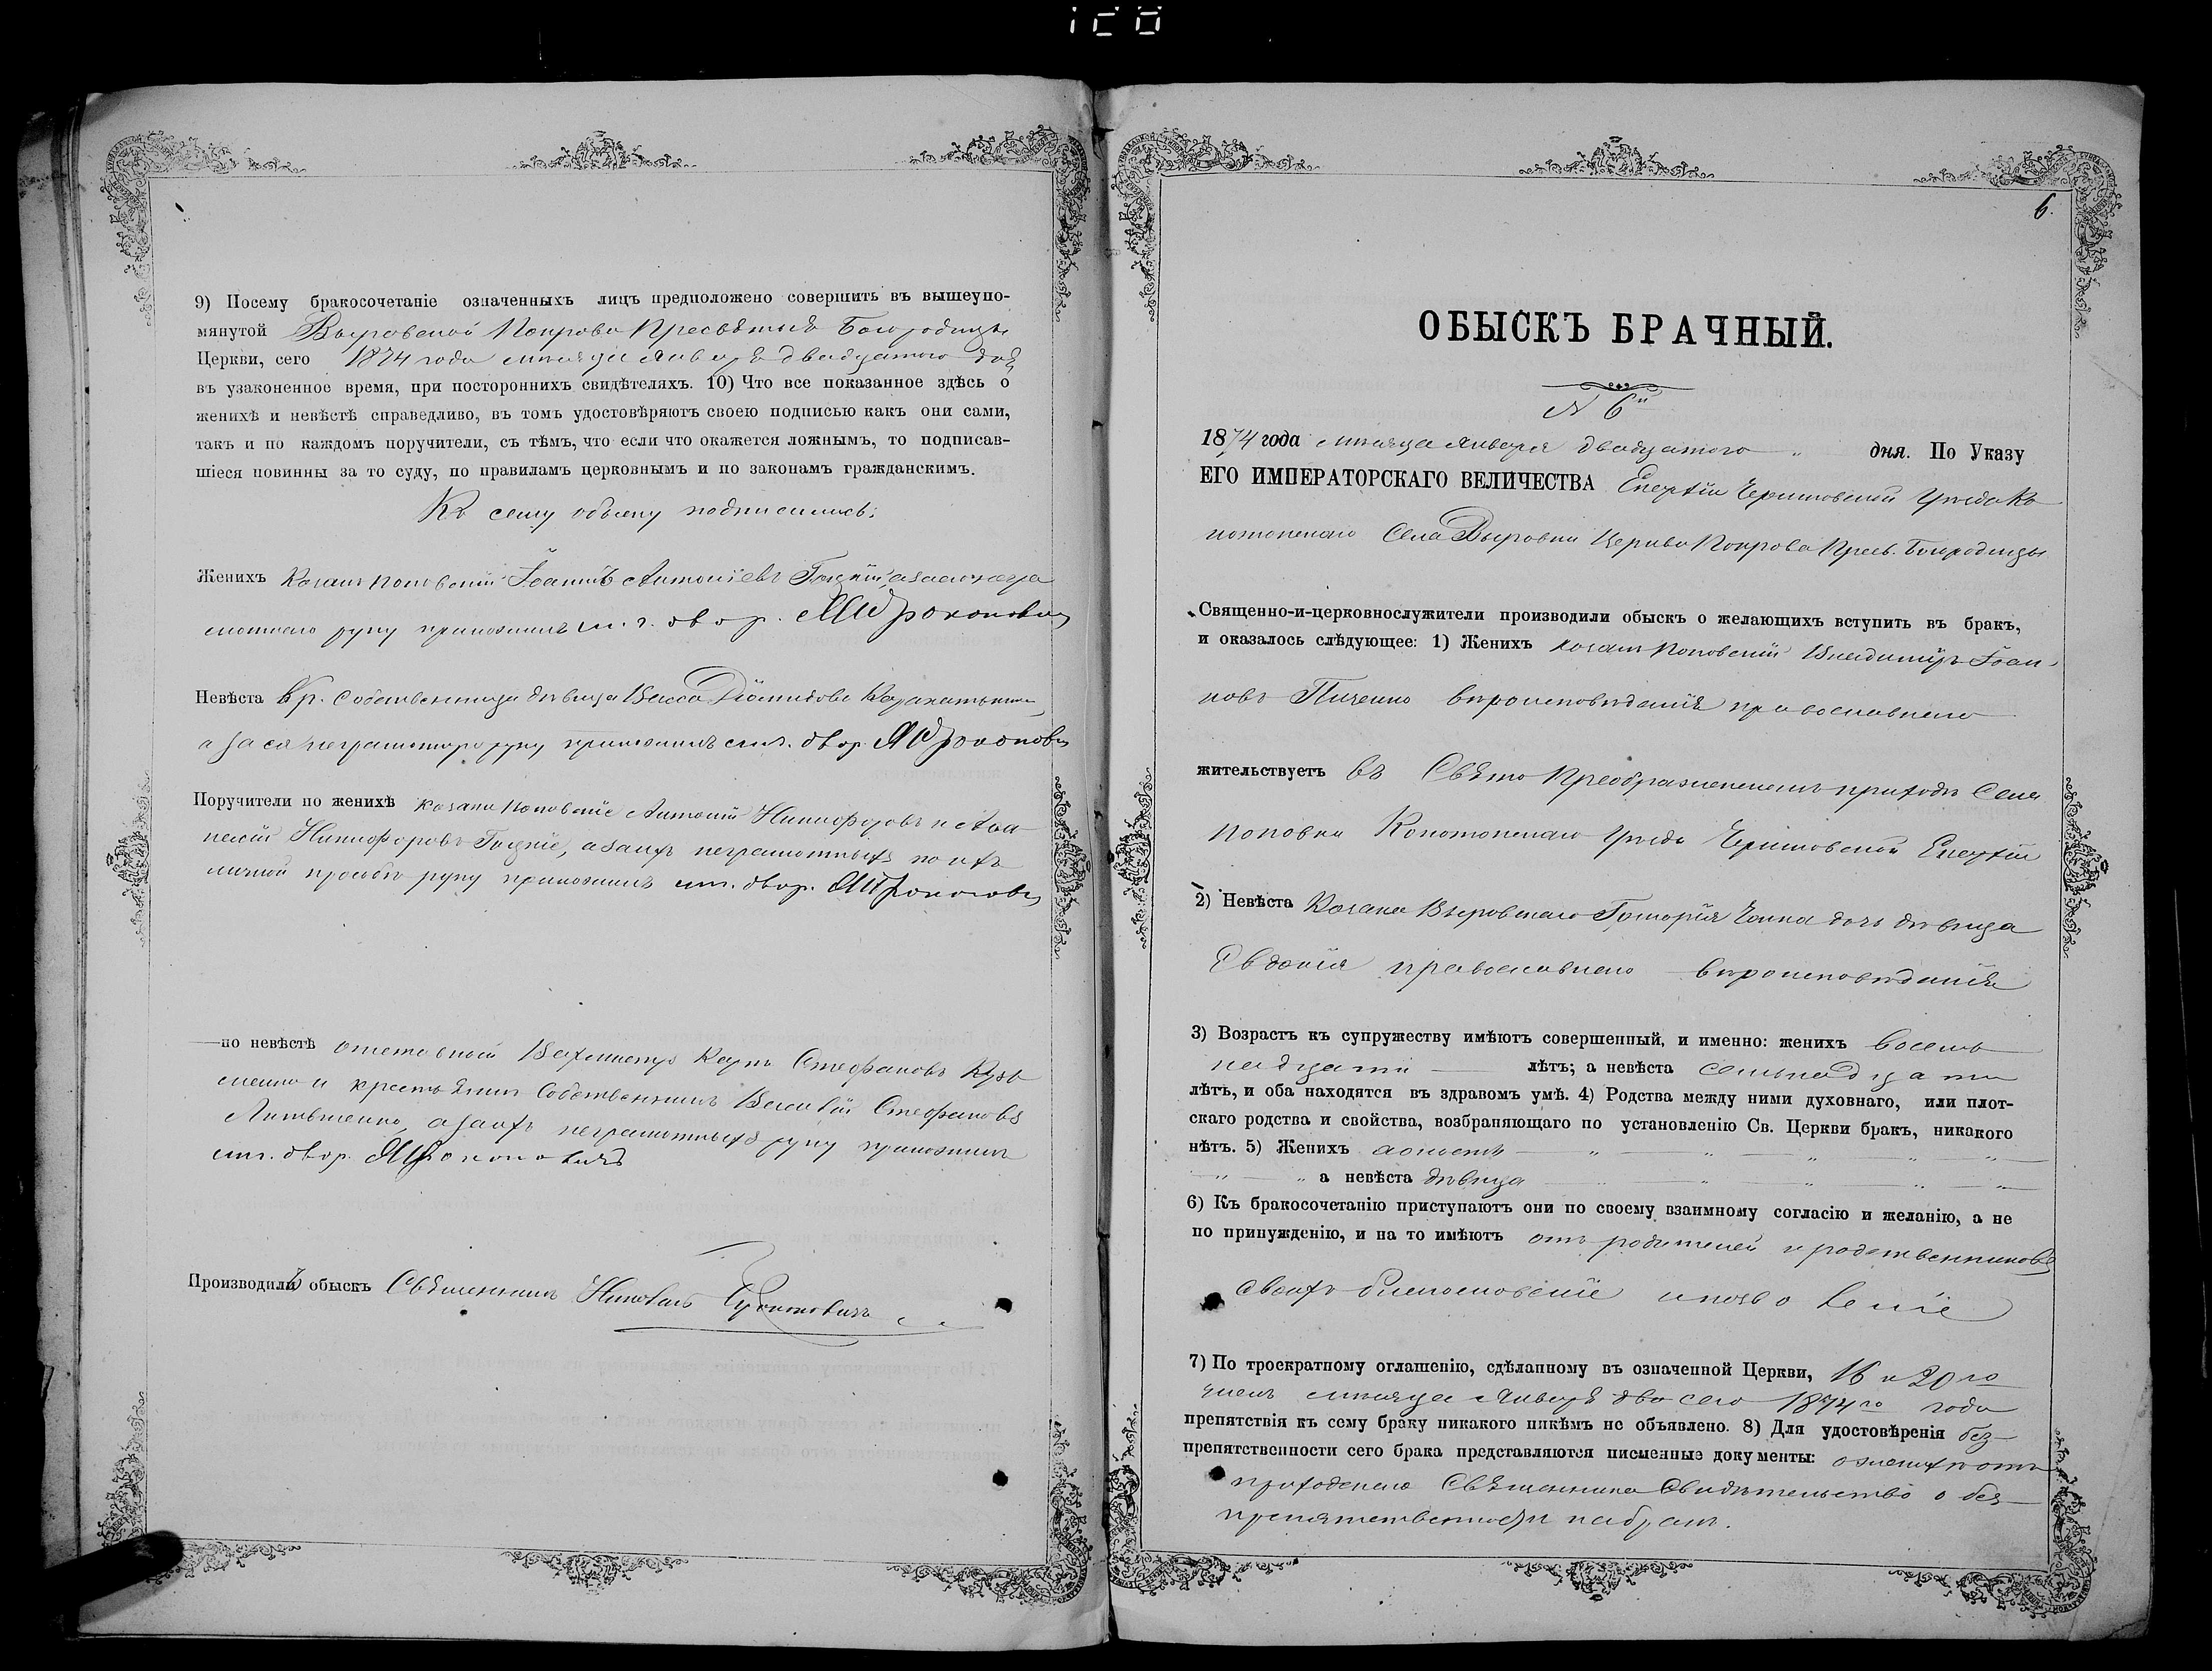 9) Посему бракосочетаніе означенныхъ лицъ предположено совершить въ вышеупо-
мянутой Выровской Покрова Пресвятыя Богородицы
Церкви, сего 1874 года мѣсяца Января двадцатого
въ узаконенное время, при постороннихъ свидѣтеляхъ. 10) Что все показанное здѣсь о
женихѣ и невѣстѣ справедливо, въ томъ удостовѣряютъ своею подписью какъ они сами,
такъ и по каждомъ поручители, съ тѣмъ, что если что окажется ложнымъ, то подписав-
шіеся повинны за то суду, по правиламъ церковнымъ и по законамъ гражданскимъ.
Къ сему обыску подписались:
Женихъ Козакъ Поповскій Іоаннъ Антоніевъ а за него негра
мотнаго руку приложилъ
Невѣста Кр. Собственница дѣвица Васса Діомидова
а за ея неграмотную руку приложилъ двор.
Поручители по женихѣ Козаки Поповскіе Антоній Никифоровъ и
Никифоровъ а за ихъ неграмотныхъ по ихъ
личной просьбѣ руку приложилъ двор.
по невѣстѣ отставной Вахмистръ Карпъ Стефановъ Кузь
менко и крестьянинъ Собственникъ Василій Стефановъ
Литвиненко, а за ихъ неграмотныхъ руку приложилъ
двор.
Производилъ обыскъ Священникъ Николай
6.
ОБЫСКЪ БРАЧНЫЙ.
N 6й
1874 года мѣсяца Января двадцатого дня. По Указу
ЕГО ИМПЕРАТОРСКАГО ВЕЛИЧЕСТВА Епархіи Черниговской Уѣзда Ко
нотопскаго Села Выровки Церкви Покрова Пресв. Богородицы
Священно-и-церковнослужители производили обыскъ о желающихъ вступить въ бракъ,
и оказалось слѣдующее: 1) Женихъ Козакъ Поповскій Владиміръ Іоан
новъ вѣроисповѣданія православнаго
жительствуетъ въ Свято Преображенскомъ приходѣ Села
Поповки Конотопскаго Уѣзда Черниговской Епархіи
2) Невѣста Козака Выровскаго Григорія дочь дѣвица
Евдокія православнаго вѣроисповѣданія
3) Возрастъ къ супружеству имѣютъ совершенный, и именно: женихъ восем
надцати лѣтъ; а невѣста семьнадцати
лѣтъ, и оба находятся въ здравомъ умѣ. 4) Родства между ними духовнаго, или плот-
скаго родства и свойства, возбраняющаго по установленію Св. Церкви бракъ, никакого
нѣтъ. 5) Женихъ холостъ
а невѣста дѣвица
6) Къ бракосочетанію приступаютъ они по своему взаимному согласію и желанію, а не
по принужденію, и на то имѣютъ отъ родителей и родственниковъ
своихъ благословеніе и позволеніе
7) По троекратному оглашенію, сдѣланному въ означенной Церкви, 16 и 20го
числъ мѣсяца Января сего 1874го года
препятствія къ сему браку никакого никѣмъ не объявлено. 8) Для удостовѣренія без-
препятственности сего брака представляются писменные документы: о женихѣ отъ
приходскаго Священника Свидѣтельство о без
препятственности на бракъ.